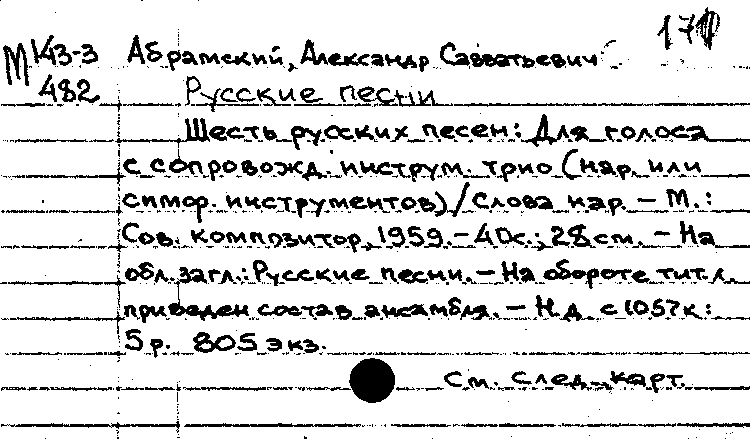 М 143-3 Абрамский, Александр Савватьевич
482 Русские песни
Шесть русских песен: Для голоса
с сопровожд. инструм. трио (нар. или
симфор. инструментов) / Слова нар. – М.:
Сов. композитор, 1959. – 40с.; 28см. – На
обл. загл.: Русские песни. – На обороте тит. л.
приведен состав ансамбля. – Н.д. с 1057к:
5р. 805 экз.
См. след. карт.